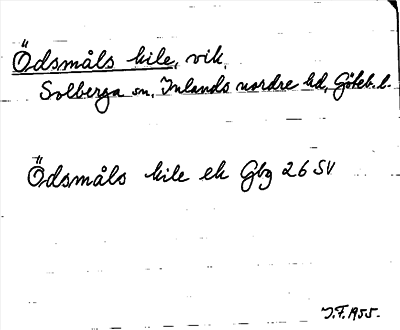 Ödsmåls kile, vik,
Solberga sn, Inlands nordre hd, Göteb. l.
Ödsmåls kile ek Gbg 26 SV
J.F. 1955.